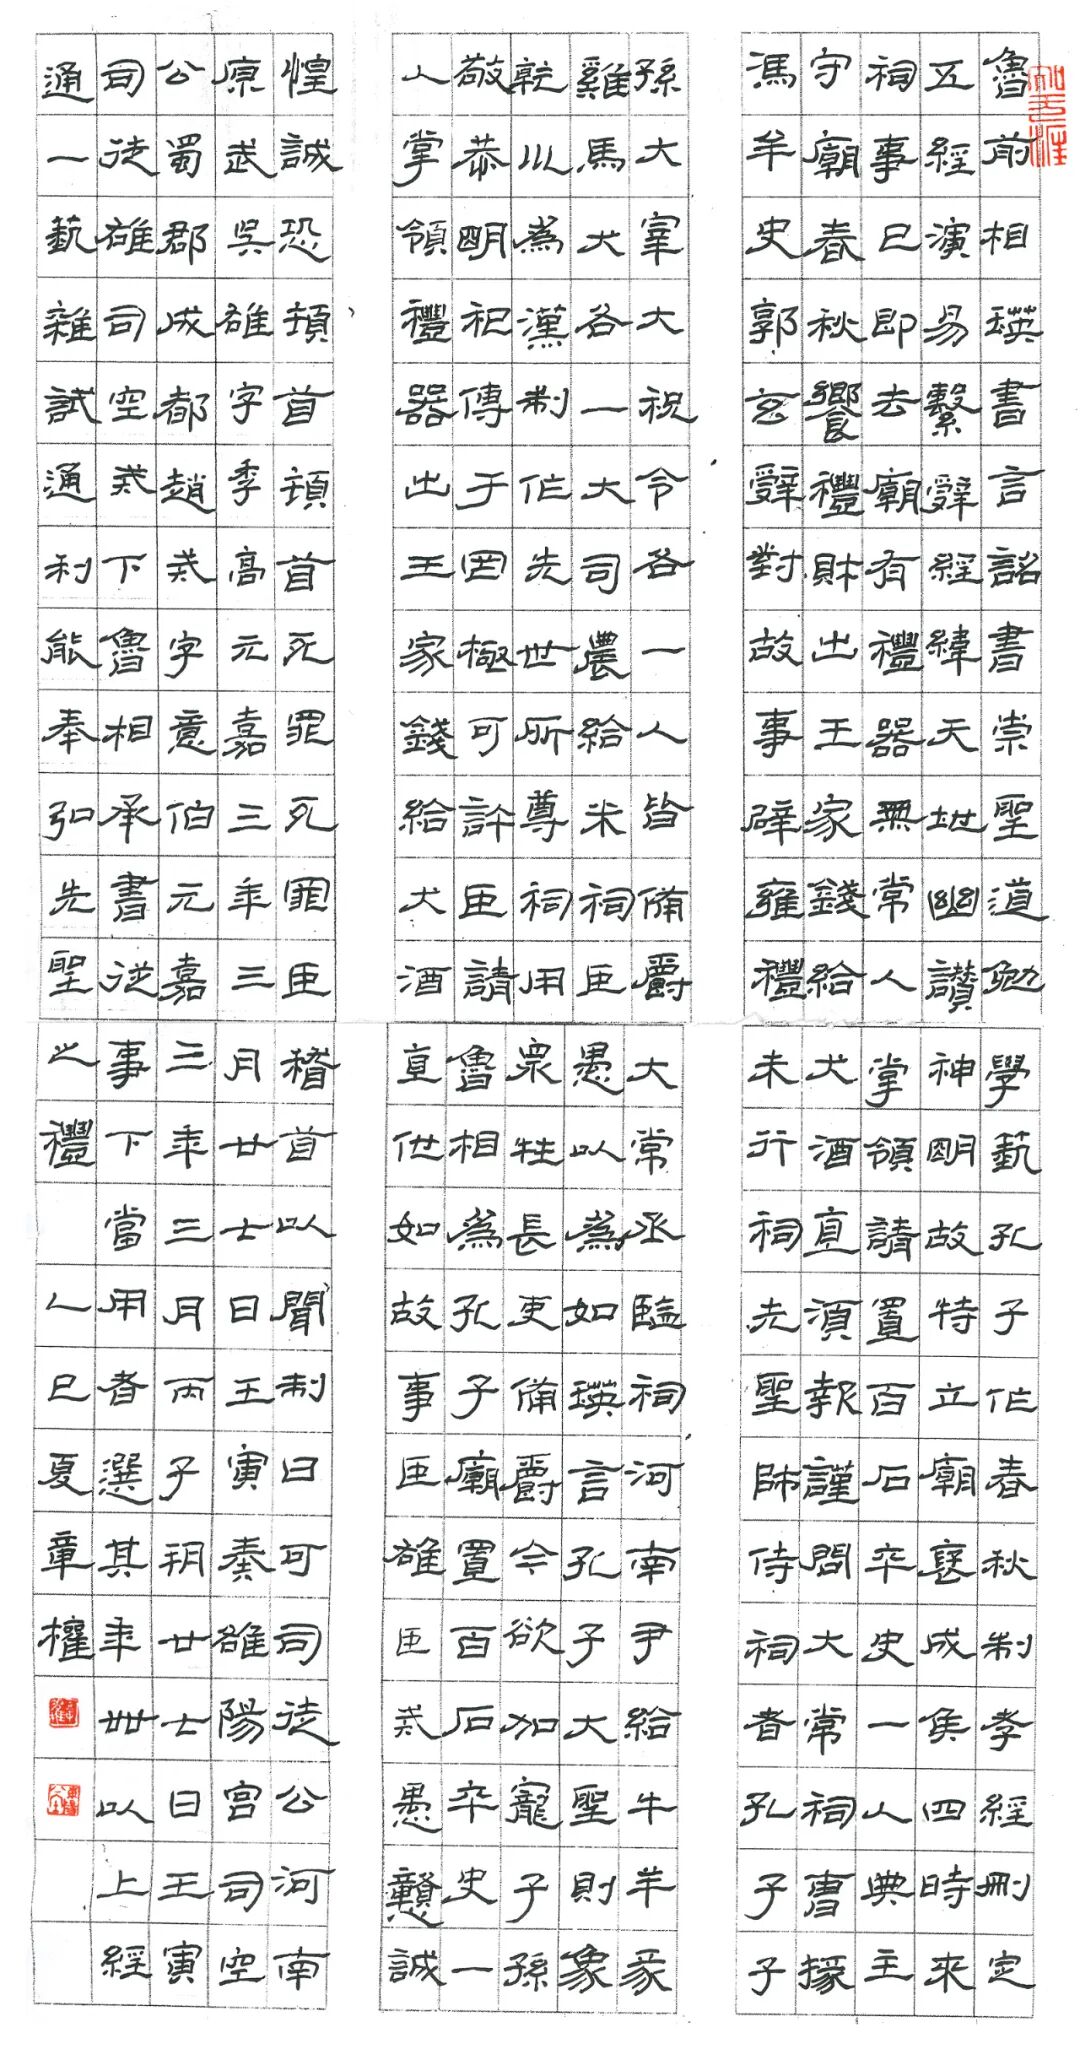 魯前相瑛書言詔書崇聖道勉學藝孔子作春秋制孝經刪定
五經演易繫辭經緯天地幽讚神明故特立廟褒成侯四時來
祠事已即去廟有禮器無常人掌領請置百石卒史一人典主
守廟春秋饗禮財出王家錢給犬酒直須報謹問大常祠曹掾
馮牟史郭玄辭對故事辟雍禮未行祠先聖師侍祠者孔子子
孫大宰大祝令各一人皆備爵大常丞監祠河南尹給牛羊豕
雞馬犬各一大司農給米祠臣愚以為如瑛言孔子大聖則象
乾巛為漢制作先世所尊祠用眾牲長吏備爵今欲加寵子孫
敬恭明祀傳于罔極可許臣請魯相為孔子廟置百石卒史一
人掌領禮器出王家錢給犬酒直他如故事臣雄臣戒愚戇誠
惶誠恐頓首頓首死罪死罪臣稽首以聞制曰可司徒公河南
原武吳雄字季高元嘉三年三月廿七日壬寅奏雒陽宮司空
公蜀郡成都趙戒字意伯元嘉三年三月丙子朔廿七日壬寅
司徒雄司空戒下魯相承書從事下當用者選其年卌以上經
通一藝雜試通利能奉弘先聖之禮 乙巳夏章權